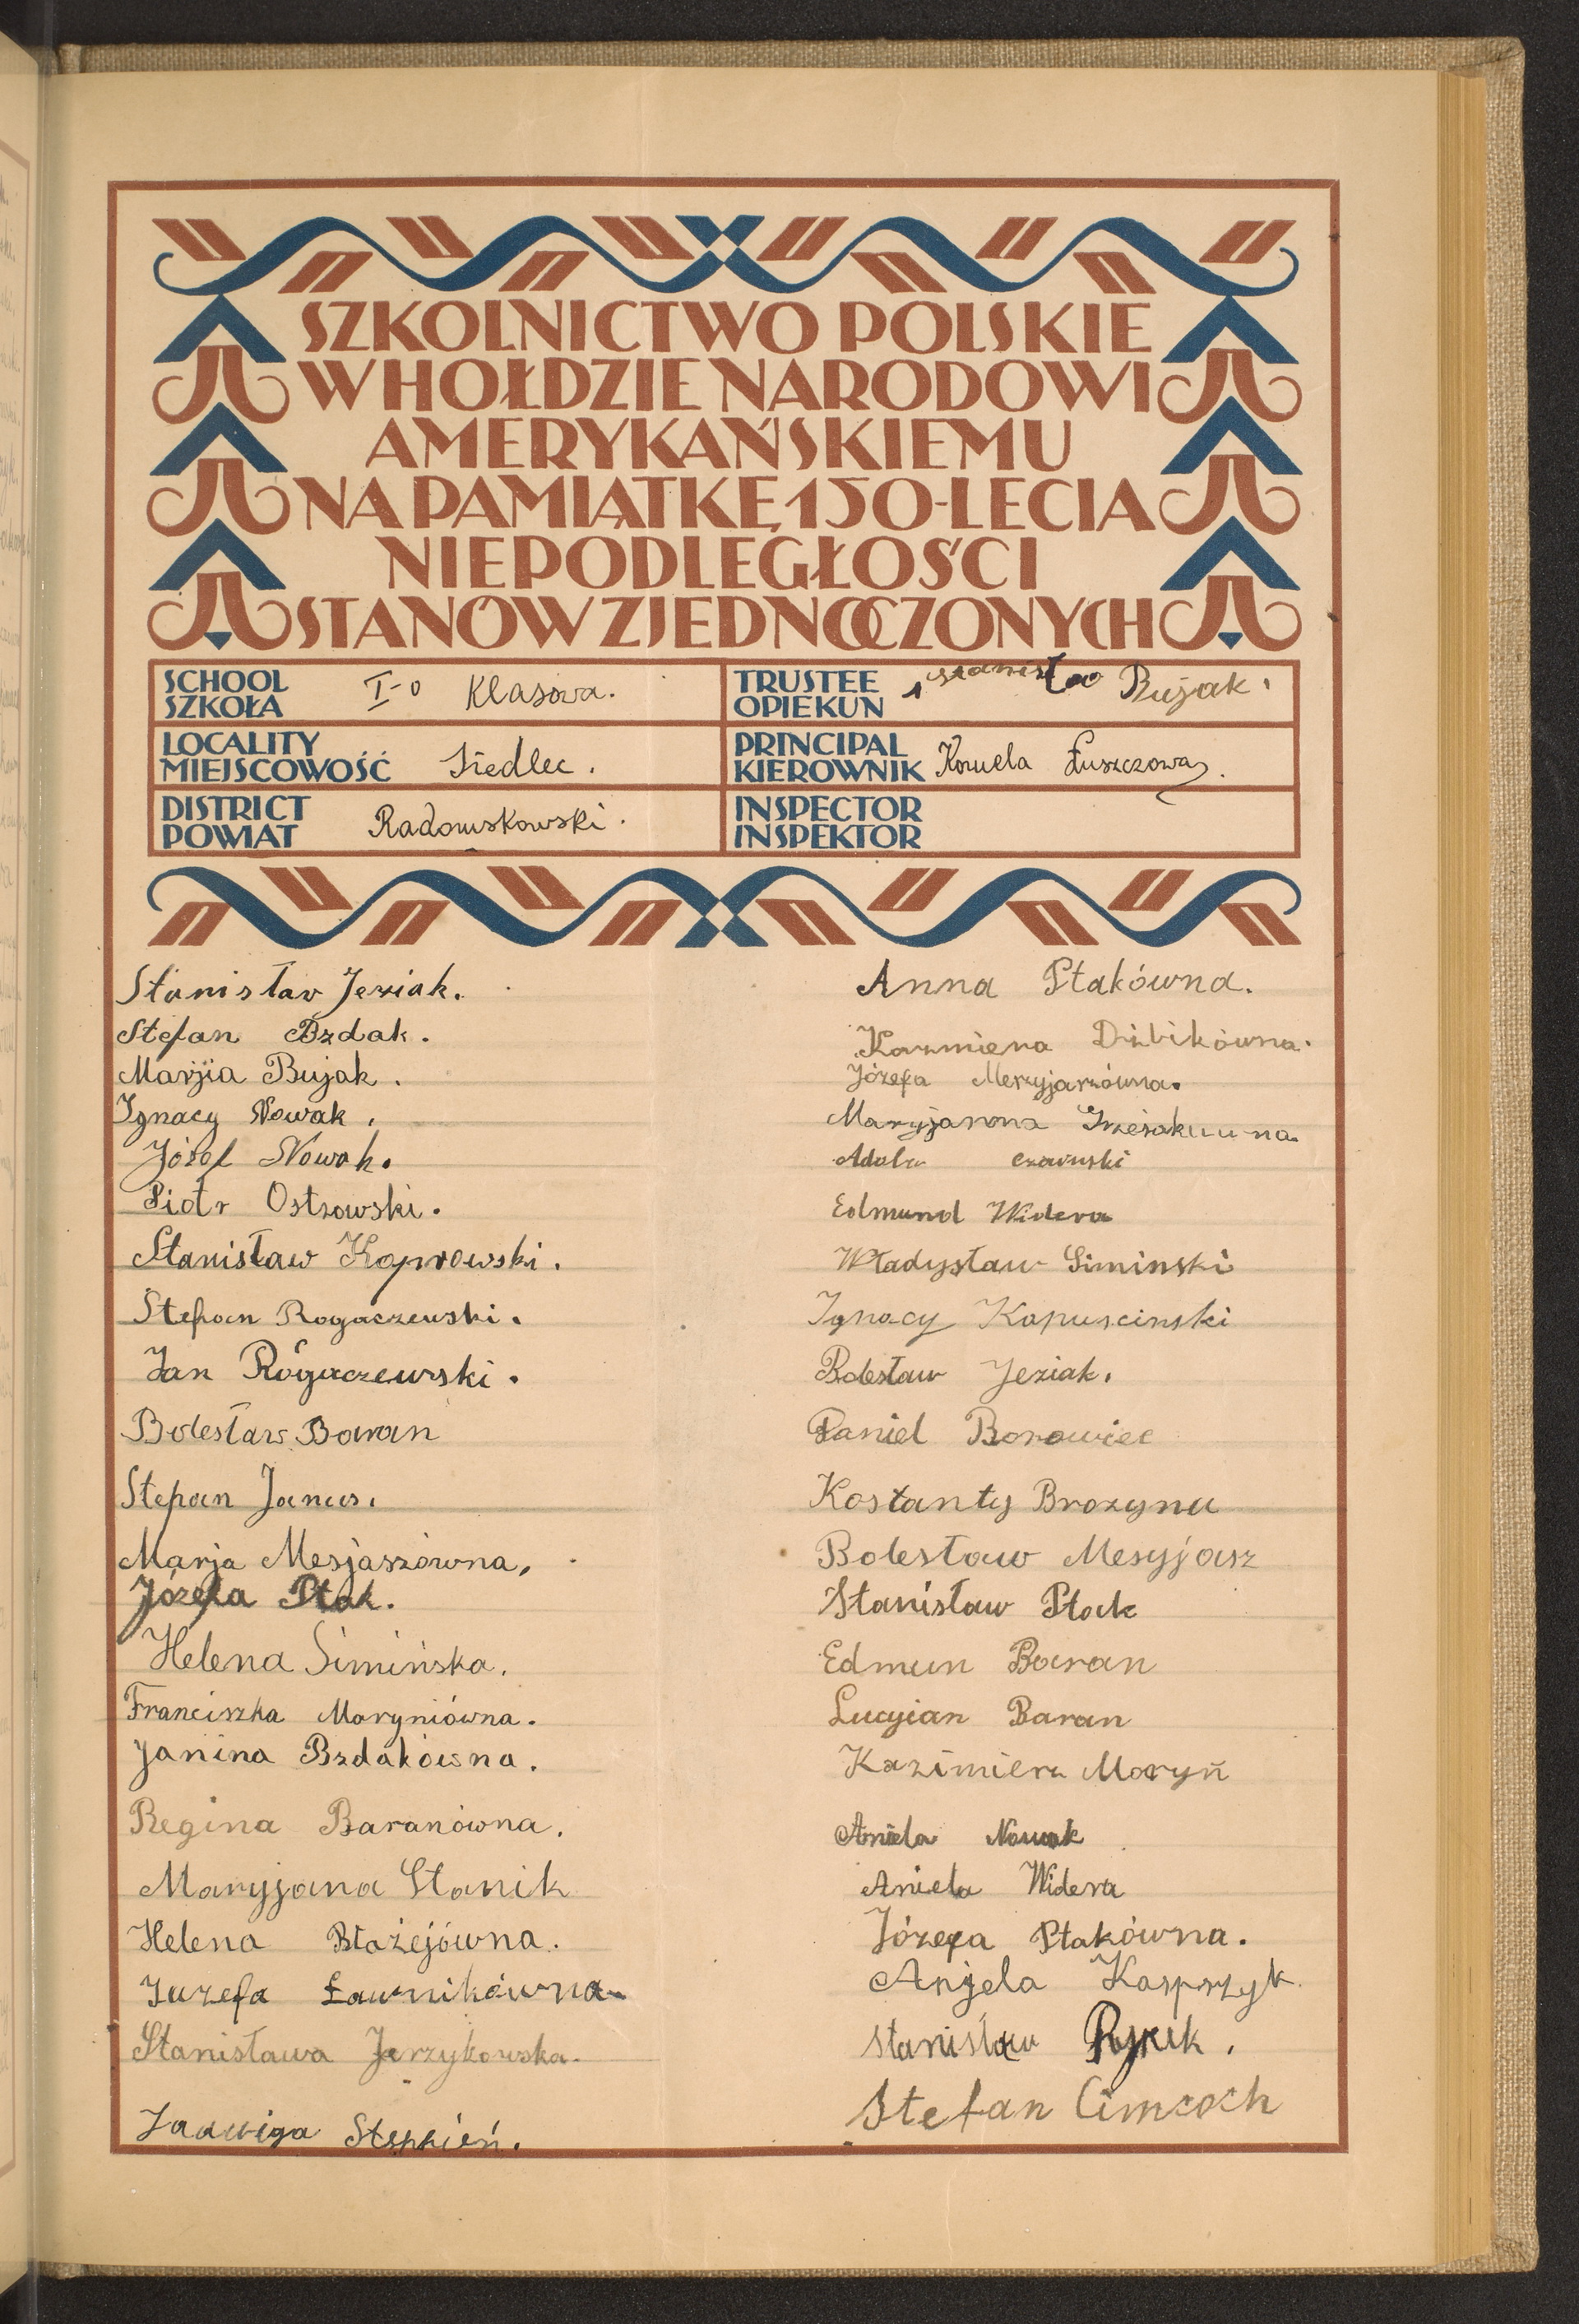 SZKOLNICTWO POLSKIE
W HOŁDZIE NARODOWI
AMERYKAŃSKIEMU
NA PAMIĄTKĘ 150-LECIA
NIEPODLEGŁOŚCI
STANÓW ZJEDNOCZONYCH
SCHOOL
SZKOŁA
I-o Klasowa.
TRUSTEE
OPIEKUN
Stanisław Bujak.
LOCALITY
MIEJSCOWOŚĆ
Siedlec.
PRINCIPAL
KIEROWNIK
Łuszczowa
DISTRICT
POWIAT
Radomskowski.
INSPECTOR
INSPEKTOR
Stanisław Jeziak.
Stefan Bzdak.
Marjia Bujak.
Ignacy Nowak.
Józef Nowak.
Piotr Ostrowski.
Stanisław Koprowski.
Stefan Rogaczewski.
Jan Rogaczewski.
Bolesław Baran
Stefan Janus.
Marja Mesjaszówna,
Józefa Ptak.
Helena Simińska.
Franciszka Moryniówna.
Janina Bzdakówna.
Regina Baranówna.
Maryjana Stanik
Helena Błażejówna.
Juzefa Ławnikówna
Stanisława Jerzykowska.
Jadwiga Stępień.
Anna Ptakówna.
Kazmiera
Józefa Mezyjarzówna.
Maryjanna
Edmund Widera
Władysław Siminski
Ignacy Kapuscinski
Bolesław Jeziak.
Daniel Borowiec
Kostanty Brozyna
Bolesław Mesyjasz
Stanisław Ptak
Edmun Baran
Lucyian Baran
Kazimierz Moryń
Aniela Nowak
Aniela Widera
Józefa Ptakówna.
Anjela Kasprzyk
Stanisław
Stefan